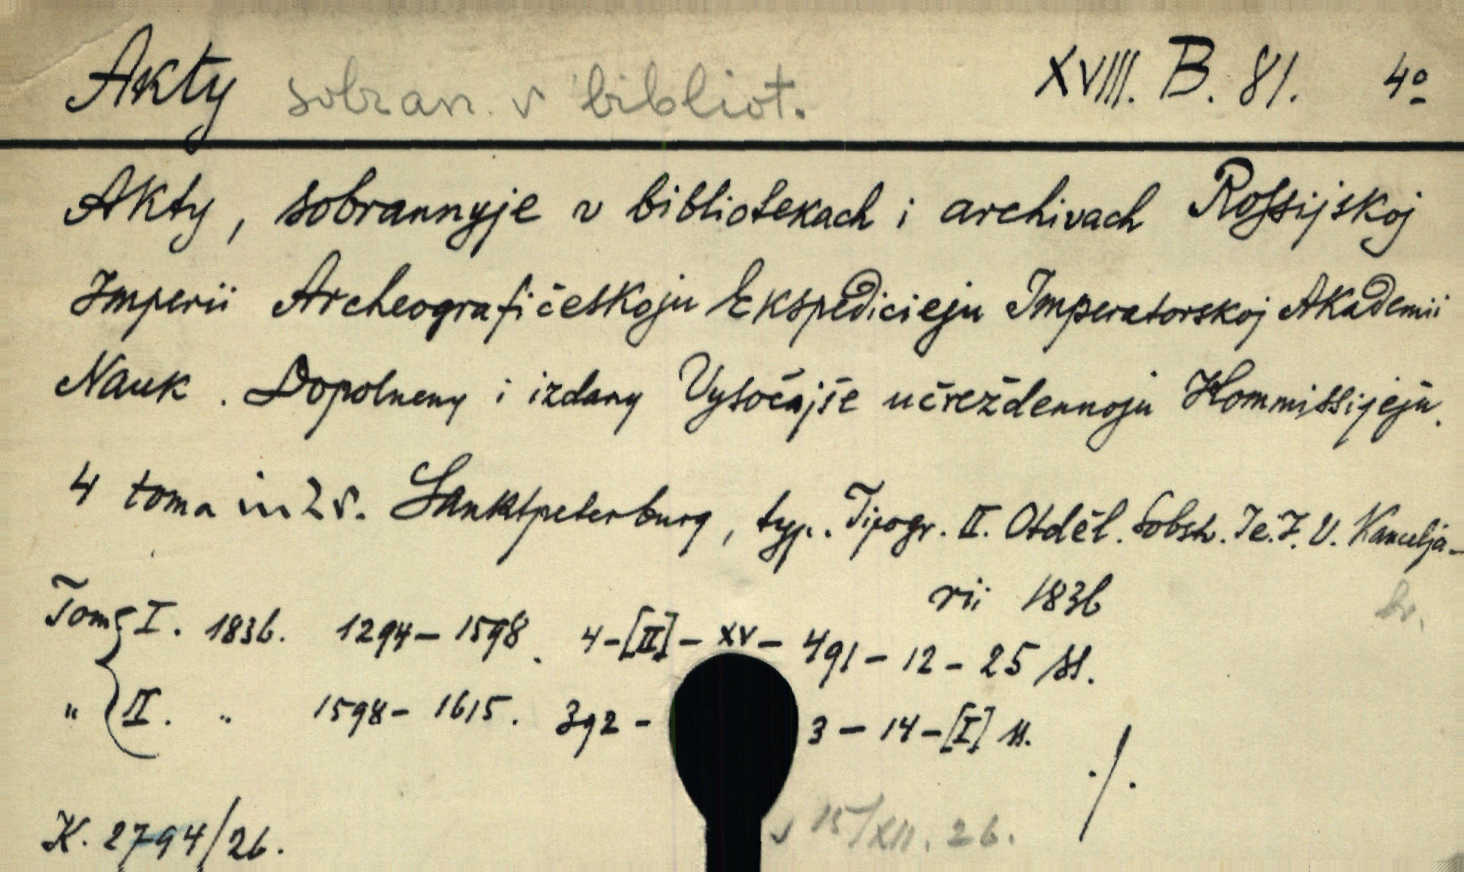 Akty sobran. v bibliot. XVIII. B. 81. 4º
Akty, sobrannyje v bibliotekach i archivach Rossijskoj
Imperii Archeografičeskoju Ekspedicieju Imperatorskoj Akademii
Nauk. Dopolneny i izdany Vysočajše učreždennoju Kommissijeju.
4 toma in 2 v. Sanktpeterburg, typ. Tipogr. II. Otděl. Sobstv. Je. I. V. Kancelja-
rii 1836
Tom I. 1836. 1294–1598. 4–[II]–XV–491–12–25 ss.
" II. " 1598–1615. 392– 3–14–[I] ss.
./.
K. 2794/26. 15/XII. 26.